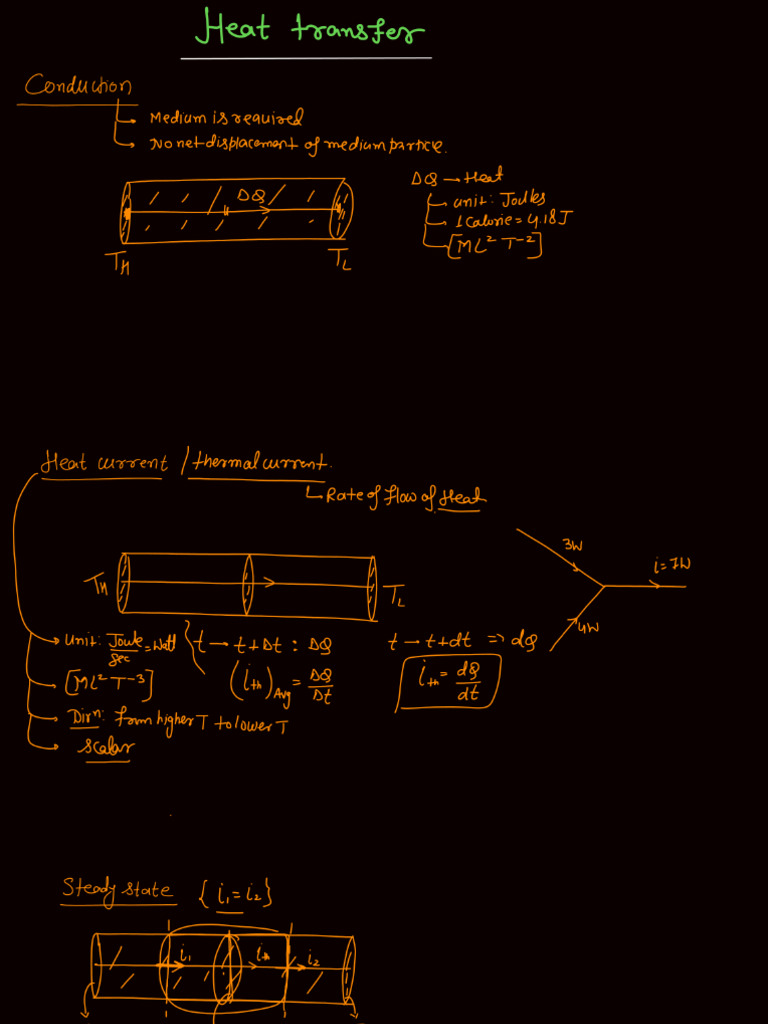 Heat transfer
Conduction
Medium is required
No net displacement of medium particle.
ΔQ
T_H
T_L
ΔQ → Heat
unit: Joules
1 Calorie = 4.18 J
[ML² T⁻²]
Heat current / thermal current.
Rate of flow of Heat
T_H
T_L
3W
4W
i = 7W
unit: Joule/sec = Watt
[ML² T⁻³]
Dirn: from higher T to lower T
Scalar
t → t+Δt : ΔQ
(i_th)_Avg = ΔQ/Δt
t → t+dt ⇒ dQ
i_th = dQ/dt
Steady state { i₁ = i₂ }
i₁ i_th i₂